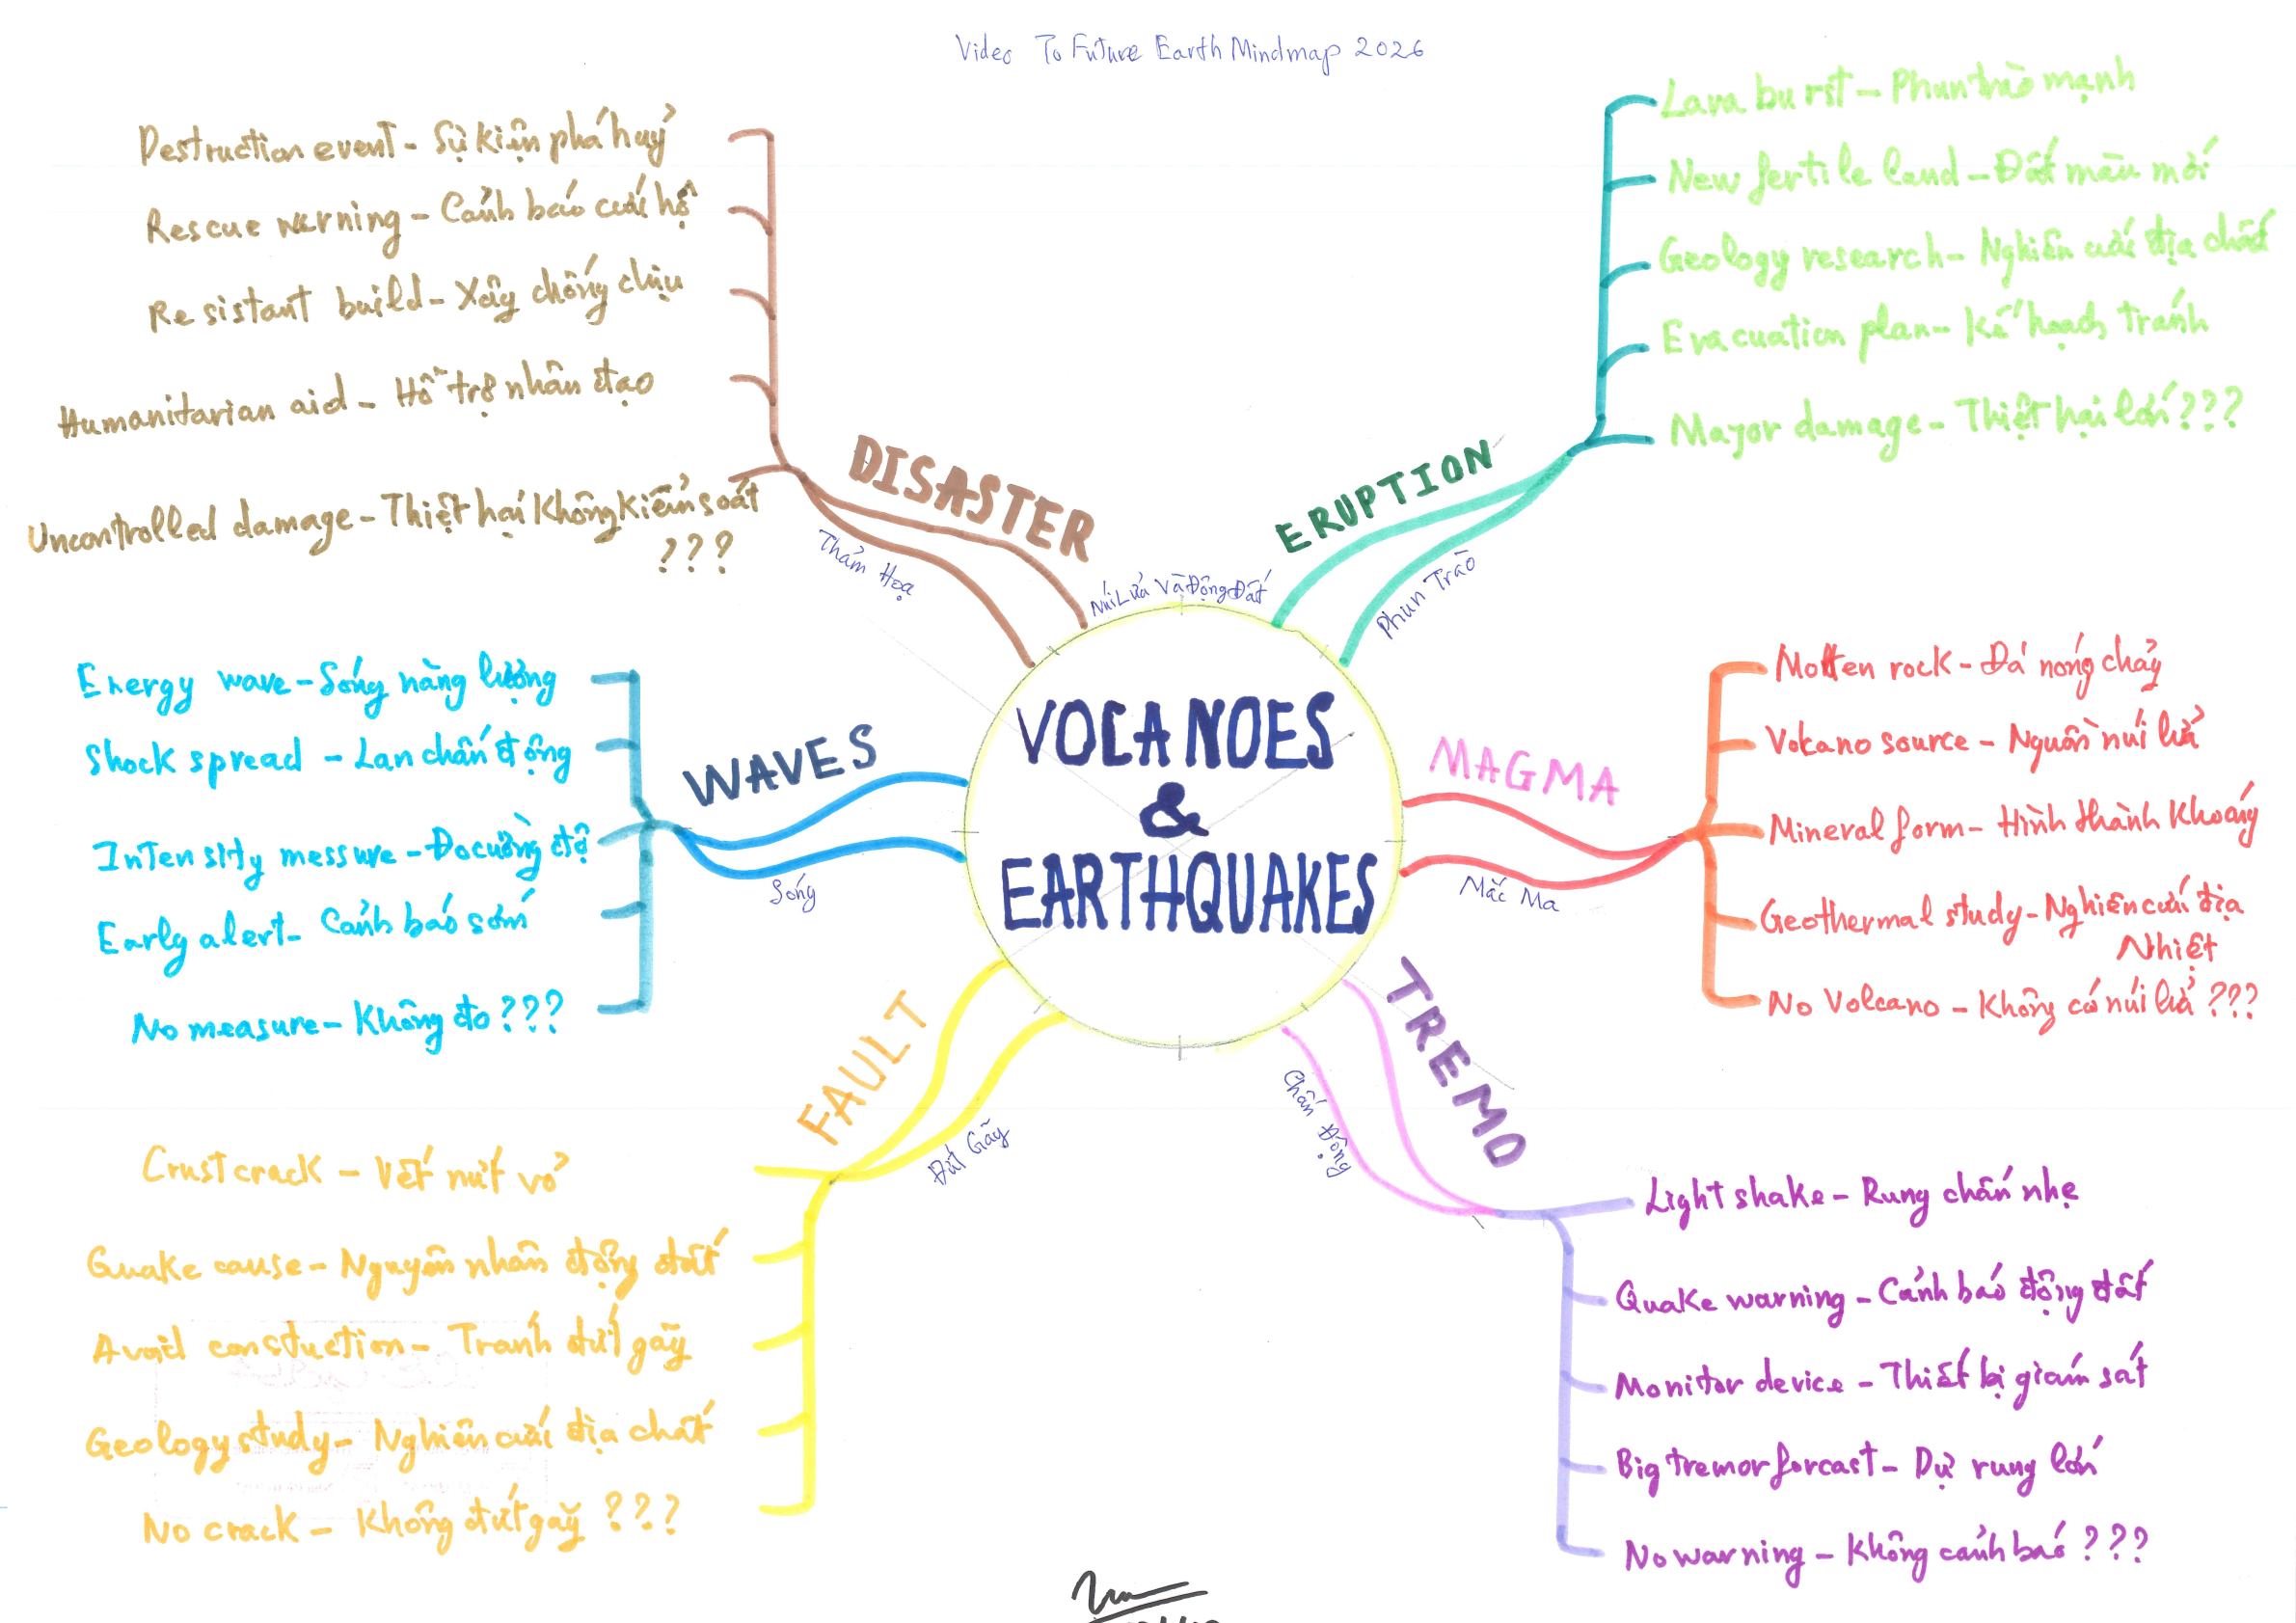 Video To Future Earth Mindmap 2026
VOCANOES
&
EARTHQUAKES
Núi Lửa Và Động Đất
ERUPTION
Phun Trào
Lava burst - Phun trào mạnh
New fertile land - Đất màu mới
Geology research - Nghiên cứu địa chất
Evacuation plan - Kế hoạch tránh
Major damage - Thiệt hại lớn ???
MAGMA
Mắc Ma
Molten rock - Đá nóng chảy
Volcano source - Nguồn núi lửa
Mineral form - Hình thành Khoáng
Geothermal study - Nghiên cứu địa
Nhiệt
No Volcano - Không có núi lửa ???
TREMO
Chấn Động
Light shake - Rung chấn nhẹ
Quake warning - Cảnh báo động đất
Monitor device - Thiết bị giám sát
Big tremor forcast - Dự rung lớn
No warning - Không cảnh báo ???
FAULT
Đứt Gãy
Crust crack - Vết nứt vỏ
Quake cause - Nguyên nhân động đất
Avoid constuction - Tránh đứt gãy
Geology study - Nghiên cứu địa chất
No crack - Không đứt gãy ???
WAVES
Sóng
Energy wave - Sóng năng lượng
Shock spread - Lan chấn động
Intensity messure - Đo cường độ
Early alert - Cảnh báo sớm
No measure - Không đo ???
DISASTER
Thảm Họa
Destruction event - Sự kiện phá huỷ
Rescue warning - Cảnh báo cứu hộ
Resistant build - Xây chống chịu
Humanitarian aid - Hỗ trợ nhân đạo
Uncontrolled damage - Thiệt hại Không kiểm soát
???